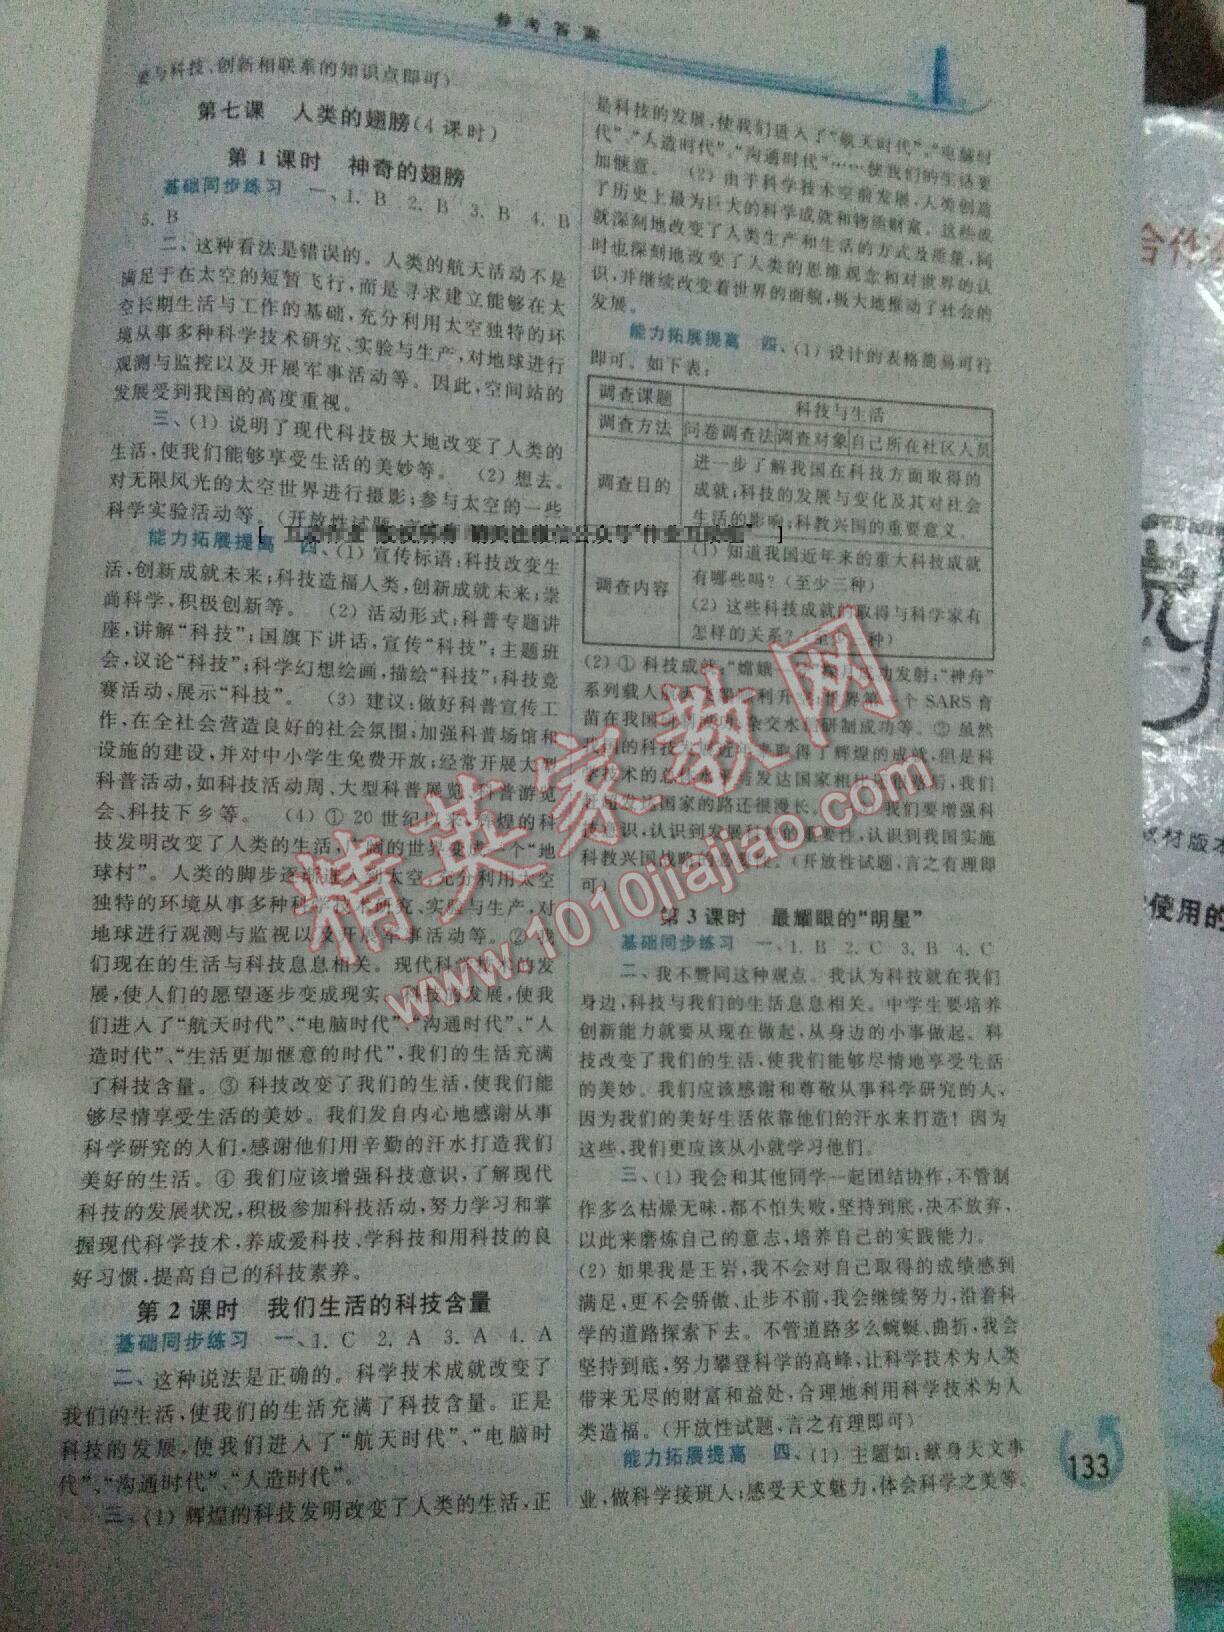 参考答案
要与科技、创新相联系的知识点即可)
第七课　人类的翅膀(4课时)
第1课时　神奇的翅膀
基础同步练习　一、1. B　2. B　3. B　4. B
5. B
二、这种看法是错误的。人类的航天活动不是
满足于在太空的短暂飞行,而是寻求建立能够在太
空长期生活与工作的基础,充分利用太空独特的环
境从事多种科学技术研究、实验与生产,对地球进行
观测与监控以及开展军事活动等。因此,空间站的
发展受到我国的高度重视。
三、(1) 说明了现代科技极大地改变了人类的
生活,使我们能够享受生活的美妙等。　(2) 想去。
对无限风光的太空世界进行摄影;参与太空的一些
科学实验活动等。(开放性试题
能力拓展提高　四、(1) 宣传标语:科技改变生
活,创新成就未来;科技造福人类,创新成就未来;崇
尚科学,积极创新等。　(2) 活动形式:科普专题讲
座,讲解“科技”;国旗下讲话,宣传“科技”;主题班
会,议论“科技”;科学幻想绘画,描绘“科技”;科技竞
赛活动,展示“科技”。　(3) 建议:做好科普宣传工
作,在全社会营造良好的社会氛围;加强科普场馆和
设施的建设,并对中小学生免费开放;经常开展大型
科普活动,如科技活动周、大型科普展览、科普游览
会、科技下乡等。　(4) ① 20 世纪以来,辉煌的科
技发明改变了人类的生活,广阔的世界变成一个“地
球村”。人类的脚步逐渐进入到太空,充分利用太空
独特的环境从事多种科学技术研究、实验与生产,对
地球进行观测与监视以及开展军事活动等。② 我
们现在的生活与科技息息相关。现代科学技术的发
展,使人们的愿望逐步变成现实。科技的发展,使我
们进入了“航天时代”、“电脑时代”、“沟通时代”、“人
造时代”、“生活更加惬意的时代”,我们的生活充满
了科技含量。③ 科技改变了我们的生活,使我们能
够尽情享受生活的美妙。我们发自内心地感谢从事
科学研究的人们,感谢他们用辛勤的汗水打造我们
美好的生活。④ 我们应该增强科技意识,了解现代
科技的发展状况,积极参加科技活动,努力学习和掌
握现代科学技术,养成爱科技、学科技和用科技的良
好习惯,提高自己的科技素养。
第2课时　我们生活的科技含量
基础同步练习　一、1. C　2. A　3. A　4. A
二、这种说法是正确的。科学技术成就改变了
我们的生活,使我们的生活充满了科技含量。正是
科技的发展,使我们进入了“航天时代”、“电脑时
代”、“沟通时代”、“人造时代”。
三、(1) 辉煌的科技发明改变了人类的生活,正
是科技的发展,使我们进入了“航天时代”、“电脑时
代”、“人造时代”、“沟通时代”……使我们的生活更
加惬意。　(2) 由于科学技术空前发展,人类创造
了历史上最为巨大的科学成就和物质财富。这些成
就深刻地改变了人类生产和生活的方式及质量,同
时也深刻地改变了人类的思维观念和对世界的认
识,并继续改变着世界的面貌,极大地推动了社会的
发展。
能力拓展提高　四、(1) 设计的表格简易可行
即可。如下表:
调查课题　科技与生活
调查方法　问卷调查法　调查对象　自己所在社区人员
调查目的　进一步了解我国在科技方面取得的
成就;科技的发展与变化及其对社会
生活的影响;科教兴国的重要意义
调查内容　(1) 知道我国近年来的重大科技成就
有哪些吗?(至少三种)
(2) 这些科技成就的取得与科学家有
怎样的关系?(至少 种)
(2) ① 科技成就:“嫦娥一 ” 月 成功发射;“神舟”
系列载人航天飞 利升 世界第 个 SARS 育
苗在我国 杂交水 研制成功等。② 虽然
我国的科技发展近年 取得了辉煌的成就,但是科
学技术的总体水平与发达国家相比 后,我们
赶超发达国家的路还很漫长。 我们要增强科
技意识,认识到发展科 的重要性,认识到我国实施
科教兴国战略的必要性。(开放性试题,言之有理即
可)
第3课时　最耀眼的“明星”
基础同步练习　一、1. B　2. C　3. B　4. C
二、我不赞同这种观点。我认为科技就在我们
身边,科技与我们的生活息息相关。中学生要培养
创新能力就要从现在做起,从身边的小事做起。科
技改变了我们的生活,使我们能够尽情地享受生活
的美妙。我们应该感谢和尊敬从事科学研究的人,
因为我们的美好生活依靠他们的汗水来打造!因为
这些,我们更应该从小就学习他们。
三、(1) 我会和其他同学一起团结协作,不管制
作多么枯燥无味,都不怕失败,坚持到底,决不放弃,
以此来磨炼自己的意志,培养自己的实践能力。
(2) 如果我是王岩,我不会对自己取得的成绩感到
满足,更不会骄傲、止步不前,我会继续努力,沿着科
学的道路探索下去。不管道路多么蜿蜒、曲折,我会
坚持到底,努力攀登科学的高峰,让科学技术为人类
带来无尽的财富和益处,合理地利用科学技术为人
类造福。(开放性试题,言之有理即可)
能力拓展提高　四、(1) 主题如:献身天文事
业,做科学接班人;感受天文魅力,体会科学之美等。
133
精英家教网
www.1010jiajiao.com
合作
教材版本
使用的